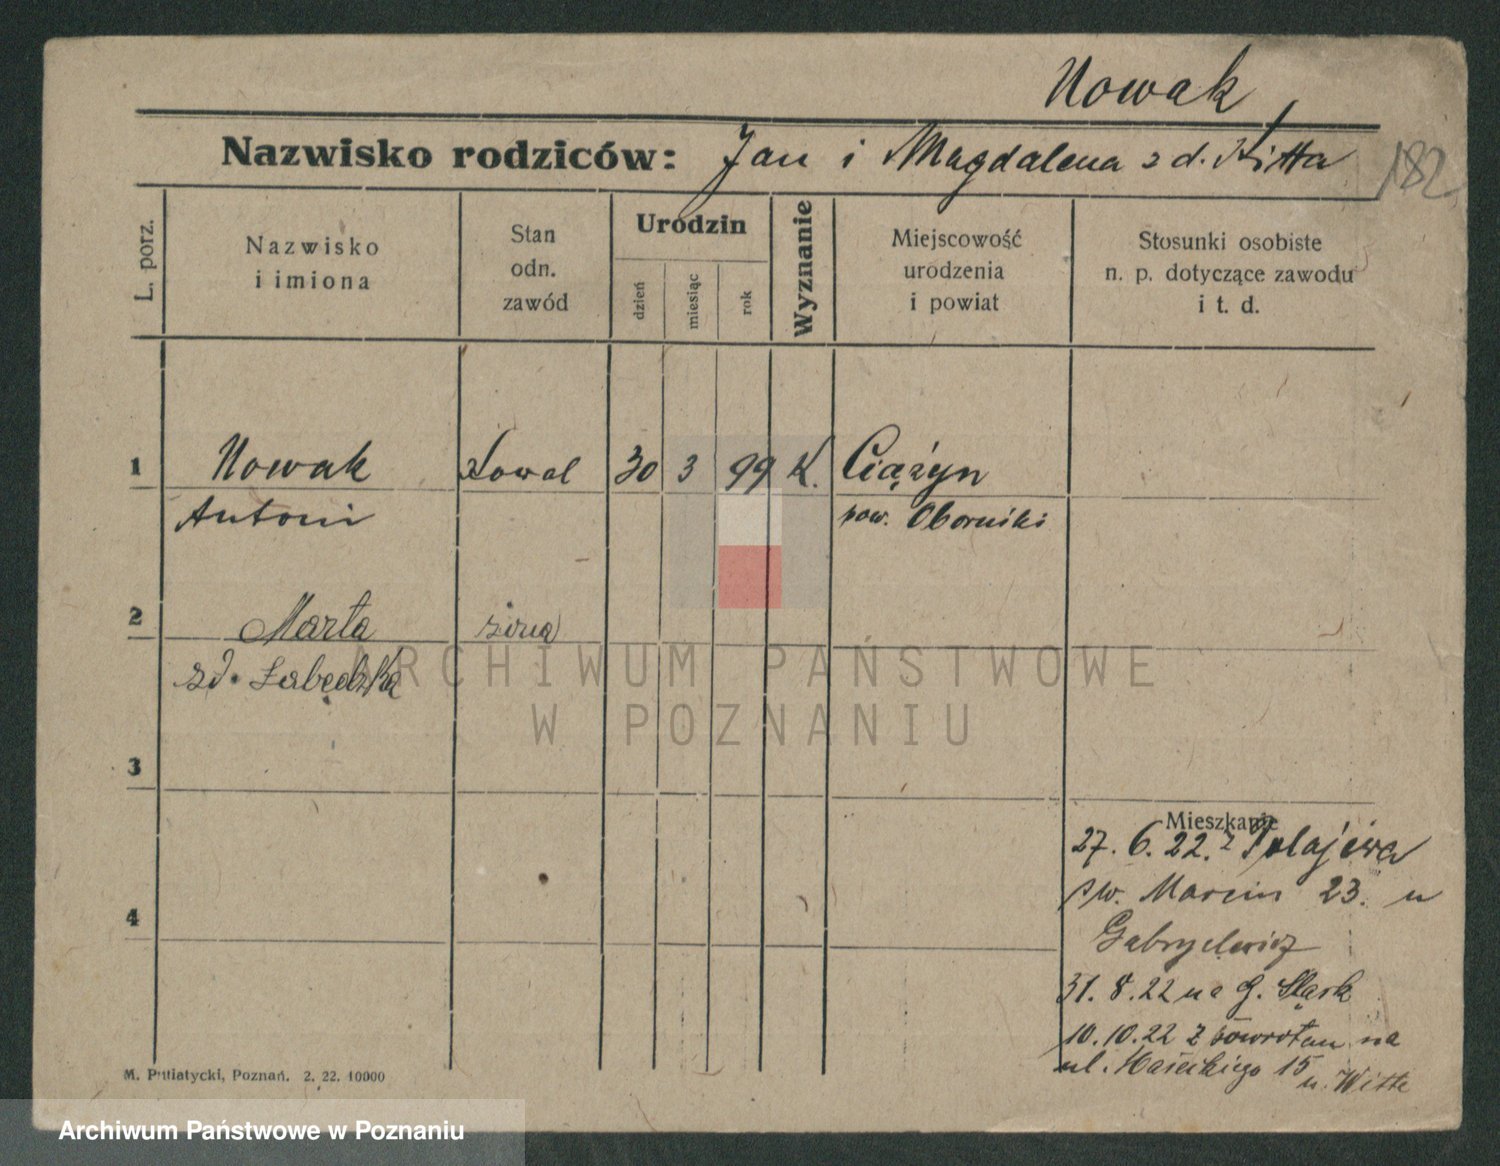 Nowak
Nazwisko rodziców: Jan i Magdalena z d. Witta
182
L. porz.
Nazwisko
i imiona
Stan
odn.
zawód
Urodzin
dzień
miesiąc
rok
Wyznanie
Miejscowość
urodzenia
i powiat
Stosunki osobiste
n. p. dotyczące zawodu
i t. d.
1
Nowak
Kowal
30
3
99
K.
Ciążyn
Antoni
pow. Oborniki
2
Marta
żona
zd. Łabędzka
3
Mieszkanie
27. 6. 22. z Połajewa
św. Marcin 23. u
Gabryelewicz
4
31. 8. 22 na G. Śląsk
10. 10. 22 z powrotem na
ul. 15 u. Witte
M. Putiatycki, Poznań. 2. 22. 10000
ARCHIWUM PAŃSTWOWE
W POZNANIU
Archiwum Państwowe w Poznaniu